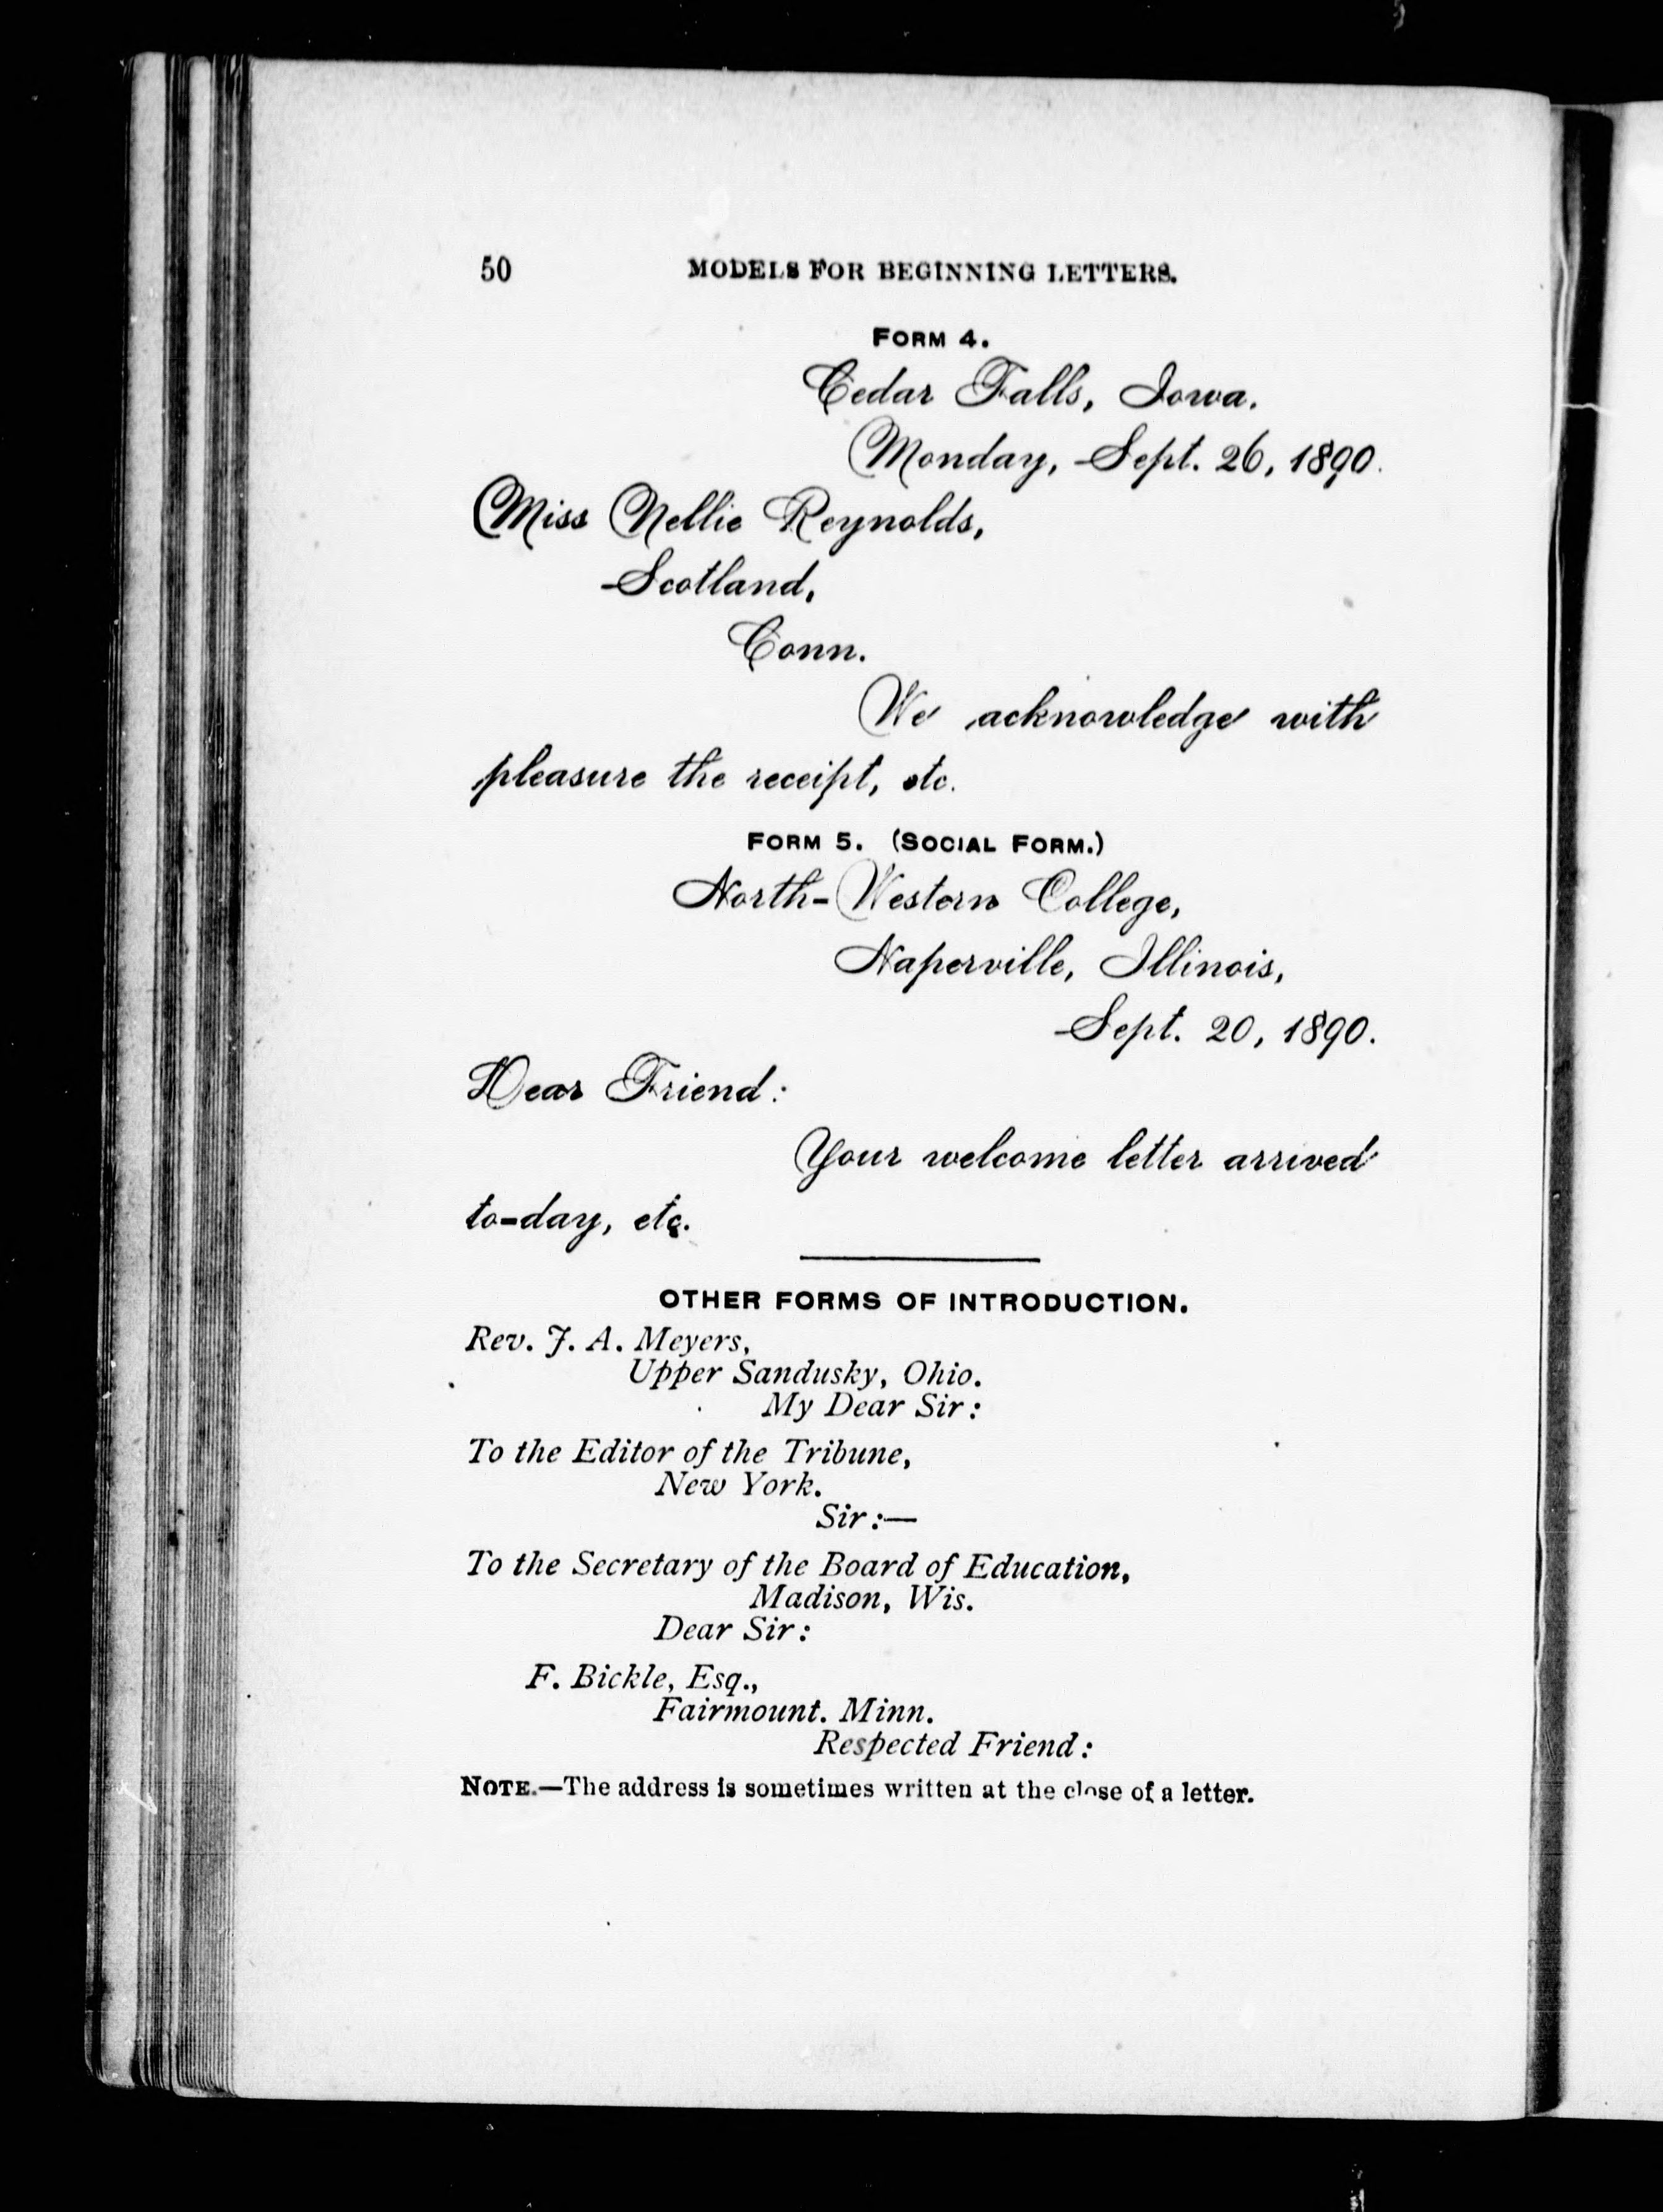 50 MODELS FOR BEGINNING LETTERS.
FORM 4.
Cedar Falls, Iowa.
Monday, Sept. 26, 1890.
Miss Nellie Reynolds,
Scotland,
Conn.
We acknowledge with
pleasure the receipt, etc.
FORM 5. (SOCIAL FORM.)
North-Western College,
Naperville, Illinois,
Sept. 20, 1890.
Dear Friend:
Your welcome letter arrived
to-day, etc.
OTHER FORMS OF INTRODUCTION.
Rev. J. A. Meyers,
Upper Sandusky, Ohio.
My Dear Sir:
To the Editor of the Tribune,
New York.
Sir:—
To the Secretary of the Board of Education,
Madison, Wis.
Dear Sir:
F. Bickle, Esq.,
Fairmount. Minn.
Respected Friend:
NOTE.—The address is sometimes written at the close of a letter.